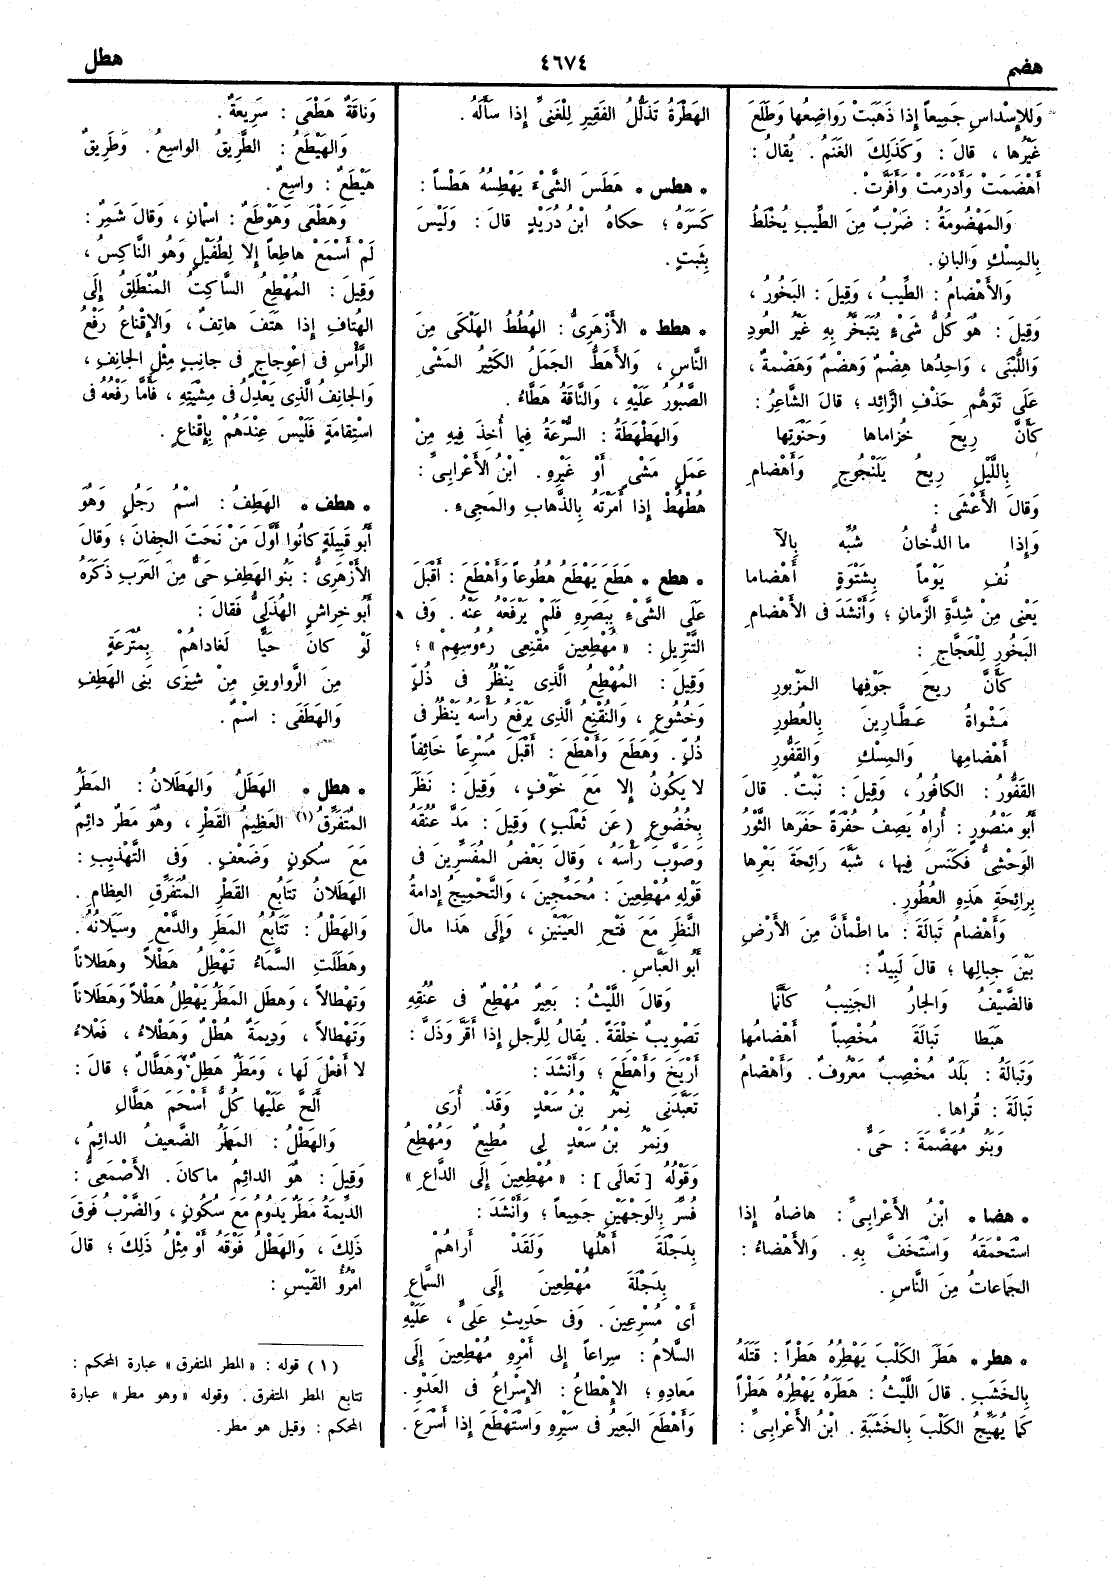 هضم
٤٦٧٤
هطل
وَلِلإِسْداسِ جَمِيعاً إِذا ذَهَبَتْ رَواضِعُها وَطَلَعَ
غَيْرُها ، قالَ : وَكَذَلِكَ الغَنَمُ . يُقالُ :
أَهْضَمَتْ وَأَدْرَمَتْ وَأَفَرَّتْ .
وَالمَهْضُومَةُ : ضَرْبٌ مِنَ الطِّيبِ يُخْلَطُ
بِالمِسْكِ وَالبانِ .
وَالأَهْضامُ : الطِّيبُ ، وَقِيلَ : البَخُورُ ،
وَقِيلَ : هُوَ كُلُّ شَيْءٍ يُتَبَخَّرُ بِهِ غَيْرُ العُودِ
وَاللُّبْنَى ، واحِدُها هِضْمٌ وَهَضْمٌ وَهَضْمَةٌ ،
عَلَى تَوَهُّمِ حَذْفِ الزَّائِدِ ؛ قالَ الشَّاعِرُ :
كَأَنَّ رِيحَ خُزاماها وَحَنْوَتِها
بِاللَّيْلِ رِيحُ يَلَنْجُوجٍ وَأَهْضامِ
وَقالَ الأَعْشَى :
وَإِذا ما الدُّخانُ شُبِّهَ بِالآ
نُفِ يَوْماً بِشَتْوَةٍ أَهْضاما
يَعْنِي مِنْ شِدَّةِ الزَّمانِ ؛ وَأَنْشَدَ فى الأَهْضامِ
البَخُورِ لِلْعَجَّاجِ :
كَأَنَّ رِيحَ جَوْفِها المَزْبورِ
مَثْواةُ عَطَّارِينَ بِالعُطورِ
أَهْضامِها وَالمِسْكِ وَالقَفُّورِ
القَفُّورُ : الكافُورُ ، وَقِيلَ : نَبْتٌ . قالَ
أَبُو مَنْصُورٍ : أُراهُ يَصِفُ حُفْرَةً حَفَرَها الثَّوْرُ
الوَحْشِىُّ فَكَنَسَ فِيها ، شَبَّهَ رائِحَةَ بَعْرِها
بِرائِحَةِ هَذِهِ العُطُورِ .
وَأَهْضامُ تَبالَةَ : ما اطْمَأَنَّ مِنَ الأَرْضِ
بَيْنَ جِبالِها ؛ قالَ لَبِيدٌ :
فالضَّيْفُ وَالجارُ الجَنِيبُ كَأَنَّما
هَبَطا تَبالَةَ مُخْصِباً أَهْضامُها
وَتَبالَةُ : بَلَدٌ مُخْصِبٌ مَعْرُوفٌ . وَأَهْضامُ
تَبالَةَ : قُراها .
وَبَنُو مُهَضَّمَةَ : حَىٌّ .
* هضا * ابْنُ الأَعْرابِىِّ : هاضاهُ إِذا
اسْتَحْمَقَهُ وَاسْتَخَفَّ بِهِ . وَالأَهْضاءُ :
الجَماعاتُ مِنَ النَّاسِ .
* هطر * هَطَرَ الكَلْبَ يَهْطِرُهُ هَطْراً : قَتَلَهُ
بِالخَشَبِ . قالَ اللَّيْثُ : هَطَرَهُ يَهْطِرُهُ هَطْراً
كَما يُهَيَّجُ الكَلْبُ بِالخَشَبَةِ . ابْنُ الأَعْرابِىِّ :
الهَطْرَةُ تَذَلُّلُ الفَقِيرِ لِلْغَنِىِّ إِذا سَأَلَهُ .
* هطس * هَطَسَ الشَّىْءَ يَهْطِسُهُ هَطْساً :
كَسَرَهُ ؛ حكاهُ ابْنُ دُرَيْدٍ قالَ : وَلَيْسَ
بِثَبتٍ .
* هطط * الأَزْهَرِىُّ : الهُطُطُ الهَلْكَى مِنَ
النَّاسِ ، وَالأَهَطُّ الجَمَلُ الكَثِيرُ المَشْىِ
الصَّبُورُ عَلَيْهِ ، وَالنَّاقَةُ هَطَّاءُ .
وَالهَطْهَطَةُ : السُّرْعَةُ فِيما أُخِذَ فِيهِ مِنْ
عَمَلٍ مَشْىٍ أَوْ غَيْرِهِ . ابْنُ الأَعْرابِىِّ :
هُطْهُطْ إِذا أَمَرْتَهُ بِالذَّهابِ والمَجِىءِ .
* هطع * هَطَعَ يَهْطَعُ هُطُوعاً وَأَهْطَعَ : أَقْبَلَ
عَلَى الشَّىْءِ بِبَصَرِهِ فَلَمْ يَرْفَعْهُ عَنْهُ . وَفى
التَّنْزِيلِ : « مُهْطِعِينَ مُقْنِعِى رُءُوسِهِمْ » ؛
وَقِيلَ : المُهْطِعُ الَّذِى يَنْظُرُ فى ذُلٍّ
وَخُشُوعٍ ، وَالمُقْنِعُ الَّذِى يَرْفَعُ رَأْسَهُ يَنْظُرُ فى
ذُلٍّ . وَهَطَعَ وَأَهْطَعَ : أَقْبَلَ مُسْرِعاً خائِفاً
لا يَكُونُ إِلا مَعَ خَوْفٍ ، وَقِيلَ : نَظَرَ
بِخُضُوعٍ ( عَنْ ثَعْلَبٍ ) وَقِيلَ : مَدَّ عُنُقَهُ
وَصَوَّبَ رَأْسَهُ ، وَقالَ بَعْضُ المُفَسِّرِينَ فى
قَوْلِهِ مُهْطِعِينَ : مُحَمِّجِينَ ، وَالتَّحْمِيجُ إِدامَةُ
النَّظَرِ مَعَ فَتْحِ العَيْنَيْنِ ، وَإِلَى هَذا مالَ
أَبُو العَبَّاسِ .
وَقالَ اللَّيْثُ : بَعِيرٌ مُهْطِعٌ فى عُنُقِهِ
تَصْوِيبٌ خِلْقَةً . يُقالُ لِلرَّجُلِ إِذا أَقَرَّ وَذَلَّ :
أَرْيَخَ وَأَهْطَعَ ؛ وَأَنْشَدَ :
تَعَبَّدَنِى نِمْرُ بْنُ سَعْدٍ وَقَدْ أُرَى
وَنِمْرُ بْنُ سَعْدٍ لِى مُطِيعٌ وَمُهْطِعُ
وَقَوْلُهُ [ تَعالَى ] : « مُهْطِعِينَ إِلَى الدَّاعِ »
فُسِّرَ بِالوَجْهَيْنِ جَمِيعاً ؛ وَأَنْشَدَ :
بِدَجْلَةَ أَهْلُها وَلَقَدْ أَراهُمْ
بِدَجْلَةَ مُهْطِعِينَ إِلَى السَّماعِ
أَىْ مُسْرِعِينَ . وَفى حَدِيثِ عَلِىٍّ ، عَلَيْهِ
السَّلامُ : سِراعاً إِلَى أَمْرِهِ مُهْطِعِينَ إِلَى
مَعادِهِ ؛ الإِهْطاعُ : الإِسْراعُ فى العَدْوِ .
وَأَهْطَعَ البَعِيرُ فى سَيْرِهِ وَاسْتَهْطَعَ إِذا أَسْرَعَ .
وَناقَةٌ هَطْعَى : سَرِيعَةٌ .
وَالهَيْطَعُ : الطَّرِيقُ الواسِعُ . وَطَرِيقٌ
هَيْطَعٌ : واسِعٌ .
وَهَطْعَى وَهَوْطَعٌ : اسْمانِ ، وَقالَ شَمِرٌ :
لَمْ أَسْمَعْ هاطِعاً إِلا لِطُفَيْلٍ وَهُوَ النَّاكِسُ ،
وَقِيلَ : المُهْطِعُ السَّاكِتُ المُنْطَلِقُ إِلَى
الهُتافِ إِذا هَتَفَ هاتِفٌ ، وَالإِقْناعُ رَفْعُ
الرَّأْسِ فى اعْوِجاجٍ فى جانِبٍ مِثْلِ الجانِفِ ،
وَالجانِفُ الَّذِى يَعْدِلُ فى مِشْيَتِهِ ، فَأَمَّا رَفْعُهُ فى
اسْتِقامَةٍ فَلَيْسَ عِنْدَهُمْ بِإِقْناعٍ .
* هطف * الهَطِفُ : اسْمُ رَجُلٍ وَهُوَ
أَبُو قَبِيلَةٍ كانُوا أَوَّلَ مَنْ نَحَتَ الجِفانَ ؛ وَقالَ
الأَزْهَرِىُّ : بَنُو الهَطِفِ حَىٌّ مِنَ العَرَبِ ذَكَرَهُ
أَبُو خِراشٍ الهُذَلِىُّ فَقالَ :
لَوْ كانَ حَيًّا لَغاداهُمْ بِمُتْرَعَةٍ
مِنَ الرَّواوِيقِ مِنْ شِيزَى بَنِى الهَطِفِ
وَالهَطَفَى : اسْمٌ .
* هطل * الهَطَلُ وَالهَطَلانُ : المَطَرُ
المُتَفَرِّقُ (١) العَظِيمُ القَطْرِ ، وَهُوَ مَطَرٌ دائِمٌ
مَعَ سُكُونٍ وَضَعْفٍ . وَفى التَّهْذِيبِ :
الهَطَلانُ تَتابُعُ القَطْرِ المُتَفَرِّقِ العِظامِ .
وَالهَطْلُ : تَتَابُعُ المَطَرِ والدَّمْعِ وسَيَلانُهُ .
وَهَطَلَتِ السَّماءُ تَهْطِلُ هَطْلاً وَهَطَلاناً
وَتَهْطالاً ، وَهَطَلَ المَطَرُ يَهْطِلُ هَطْلاً وَهَطَلاناً
وَتَهْطالاً ، وَدِيمَةٌ هُطْلٌ وَهَطْلاءُ ، فَعْلاءُ
لا أَفْعَلَ لَها ، وَمَطَرٌ هَطِلٌ وَهَطَّالٌ ؛ قالَ :
أَلَحَّ عَلَيْها كُلُّ أَسْحَمَ هَطَّالِ
وَالهَطْلُ : المَطَرُ الضَّعِيفُ الدائِمُ ،
وَقِيلَ : هُوَ الدائِمُ ما كانَ . الأَصْمَعِىُّ :
الدِّيمَةُ مَطَرٌ يَدُومُ مَعَ سُكُونٍ ، وَالضَّرْبُ فَوْقَ
ذَلِكَ ، وَالهَطْلُ فَوْقَهُ أَوْ مِثْلُ ذَلِكَ ؛ قالَ
امْرُؤُ القَيْسِ :
(١) قوله : « المطر المتفرق » عبارة المحكم :
تتابع المطر المتفرق . وقوله « وهو مطر » عبارة
المحكم : وقيل هو مطر .